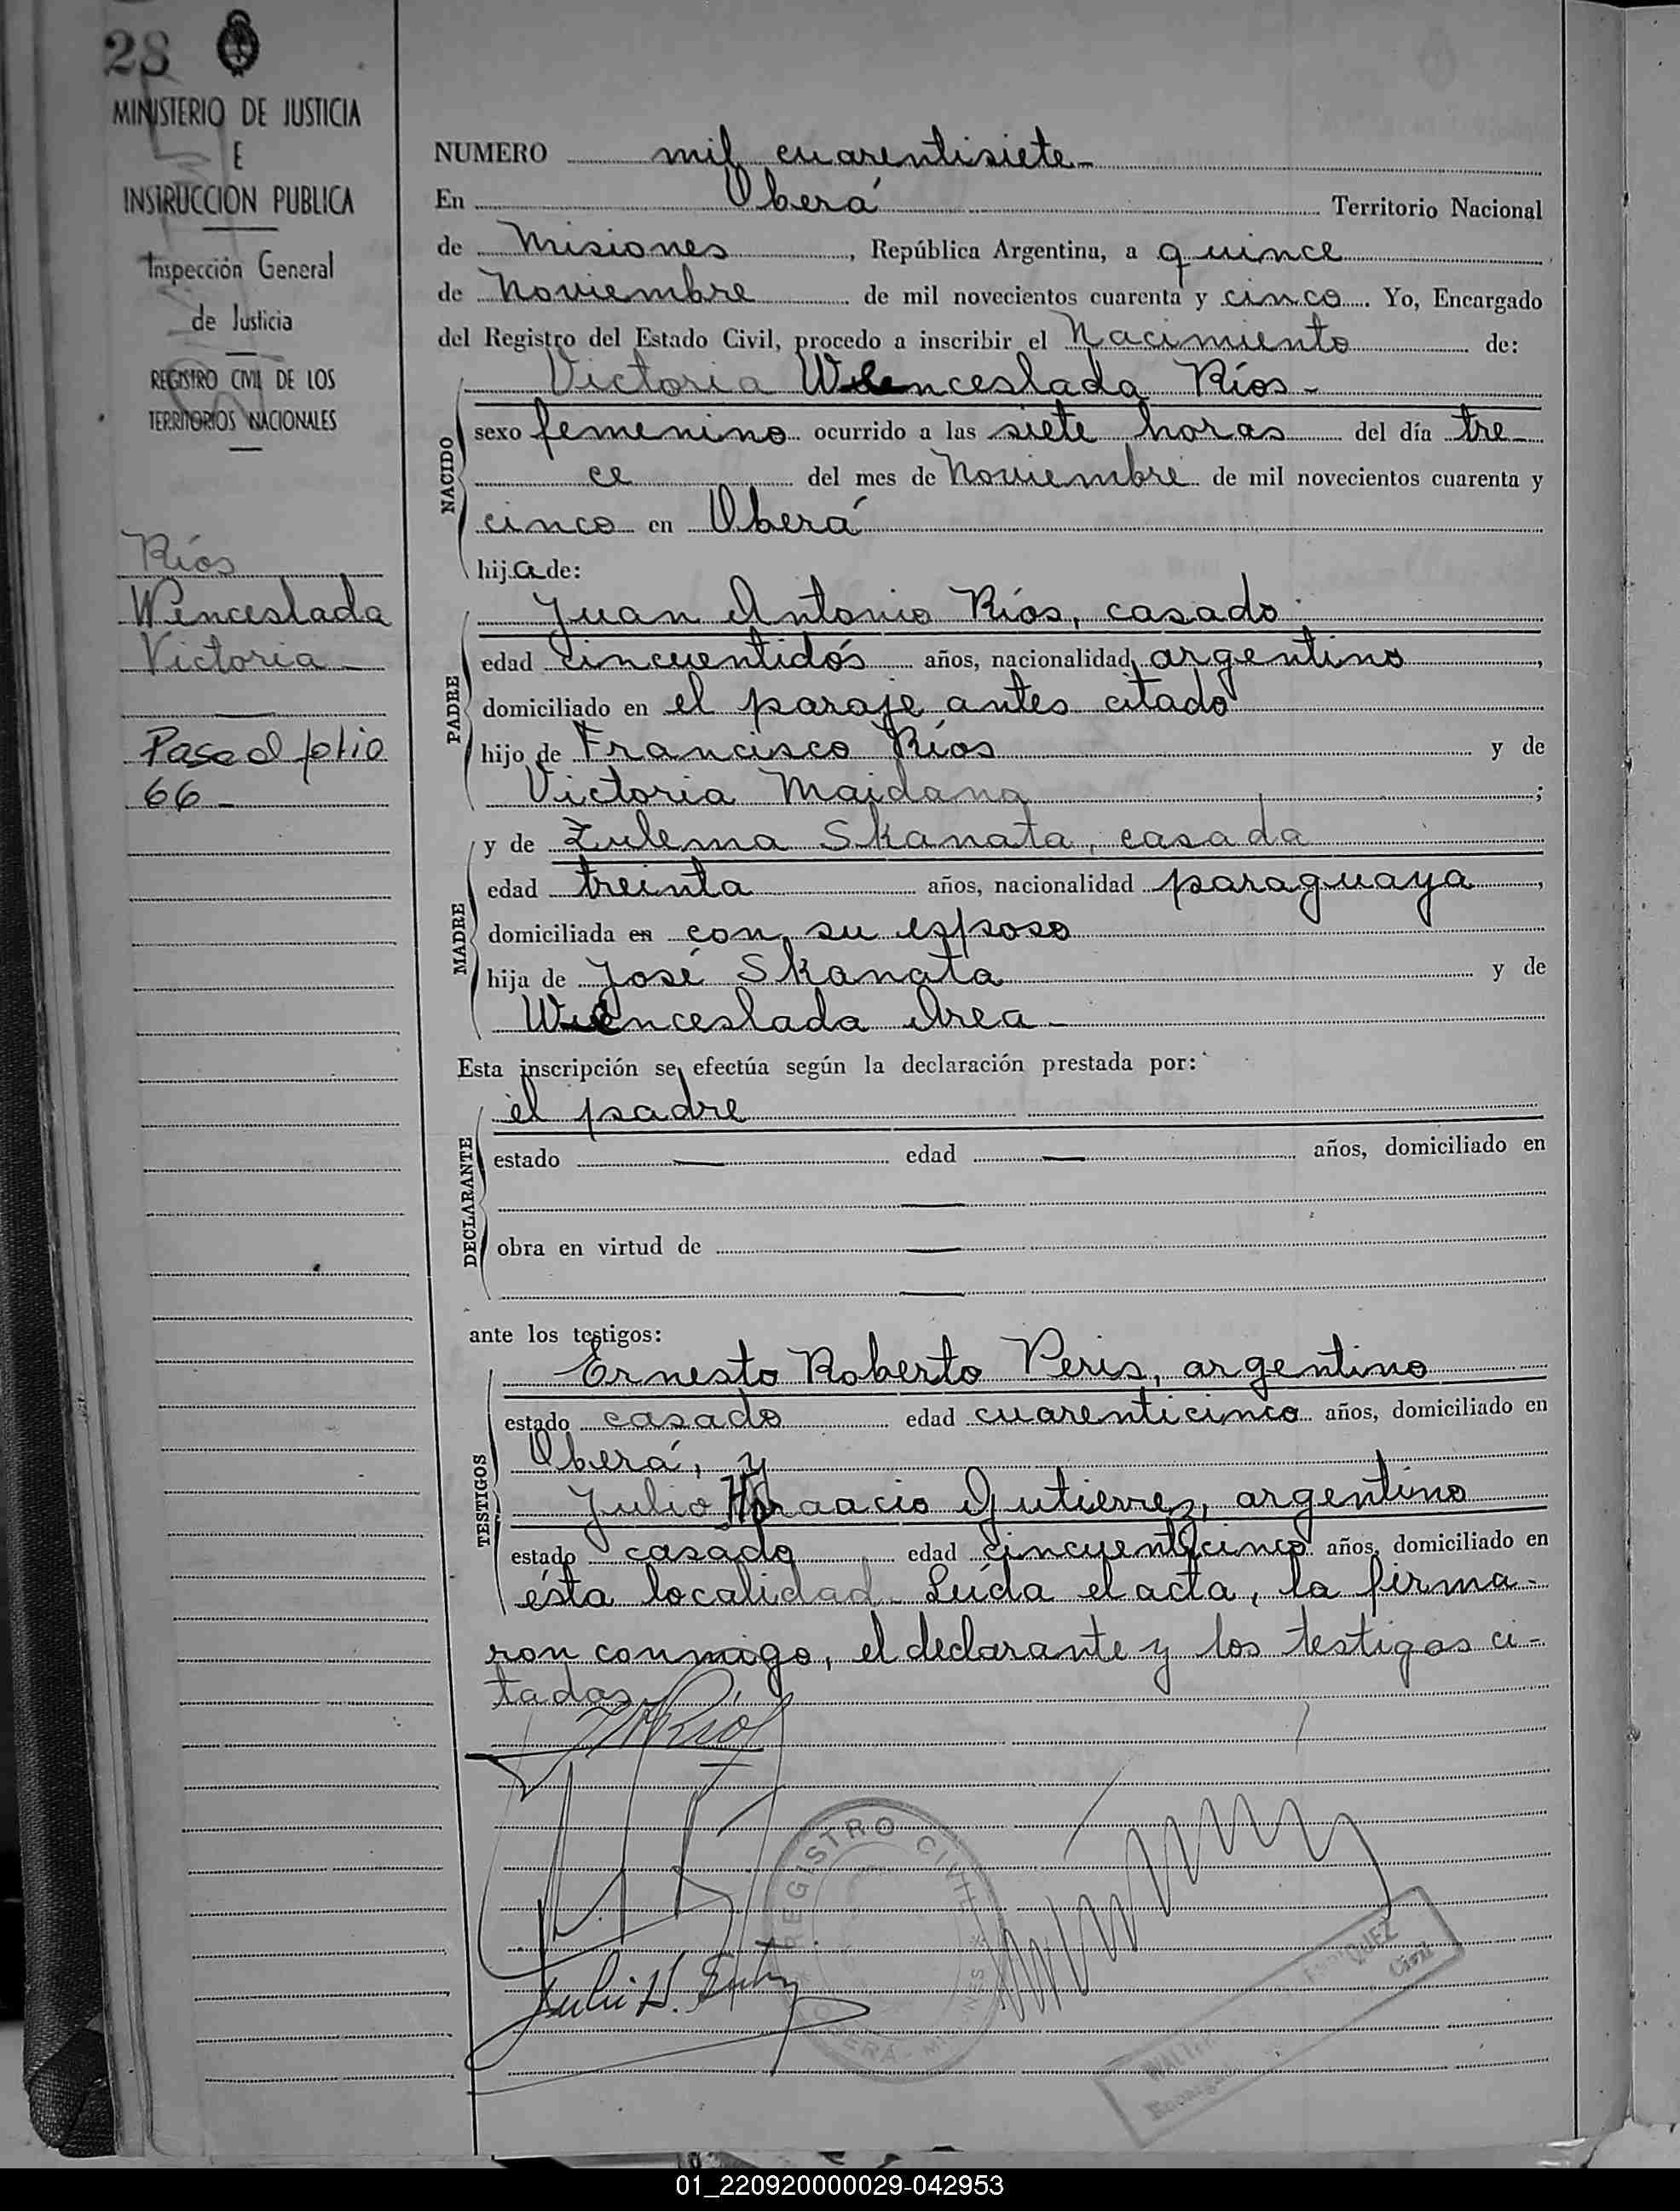 28
MINISTERIO DE JUSTICIA
E
INSTRUCCION PUBLICA
Inspección General
de Justicia
REGISTRO CIVIL DE LOS
TERRITORIOS NACIONALES
Ríos
Wenceslada
Victoria
Pase al folio
66
NUMERO mil cuarentisiete
En Oberá Territorio Nacional
de Misiones, República Argentina, a quince
de Noviembre de mil novecientos cuarenta y cinco. Yo, Encargado
del Registro del Estado Civil, procedo a inscribir el Nacimiento de:
Victoria Wenceslada Ríos
NACIDO
sexo femenino ocurrido a las siete horas del día tre
ce del mes de Noviembre de mil novecientos cuarenta y
cinco en Oberá
hija de:
Juan Antonio Ríos, casado
PADRE
edad cincuentidós años, nacionalidad argentino,
domiciliado en el paraje antes citado
hijo de Francisco Ríos y de
Victoria Maidana;
y de Zulema Skanata, casada
MADRE
edad treinta años, nacionalidad paraguaya,
domiciliada en con su esposo
hija de José Skanata y de
Wenceslada Area
Esta inscripción se efectúa según la declaración prestada por:
el padre
DECLARANTE
estado — edad — años, domiciliado en
—
obra en virtud de —
—
ante los testigos:
Ernesto Roberto Peris, argentino
TESTIGOS
estado casado edad cuarenticinco años, domiciliado en
Oberá, y
Julio Horaacio Gutierrez, argentino
estado casado edad cincuenticinco años, domiciliado en
ésta localidad. Leída el acta, la firma-
ron conmigo, el declarante y los testigos ci-
tados
REGISTRO CIVIL
01_220920000029-042953